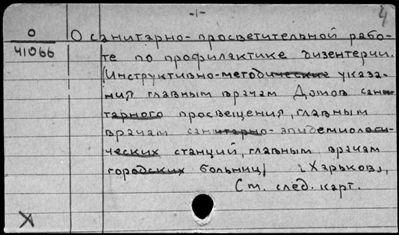 -1-
4
О
41066
О санитарно-просветительной рабо-
те по профилактике дизентерии.
[Инструктивно-методические указа-
ния главным врачам Домов сани-
тарного просвещения, главным
врачам санитарно-эпидемиологи-
ческих станций, главным врачам
городских больниц] [Харьков],
См. след. карт.
Х